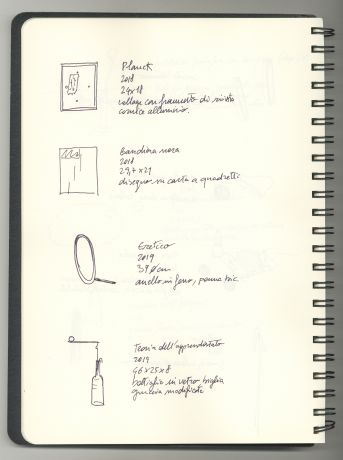 Planck
2018
24x18
collage con frammento di rivista
cornice alluminio.
Bandiera nera
2018
29,7x21
disegno su carta a quadretti
Eretico
2019
37 ø cm
anello in ferro, penna bic.
Teoria dell'apprendistato
2019
46x25x8
bottiglia in vetro, biglia
gruccia modificata